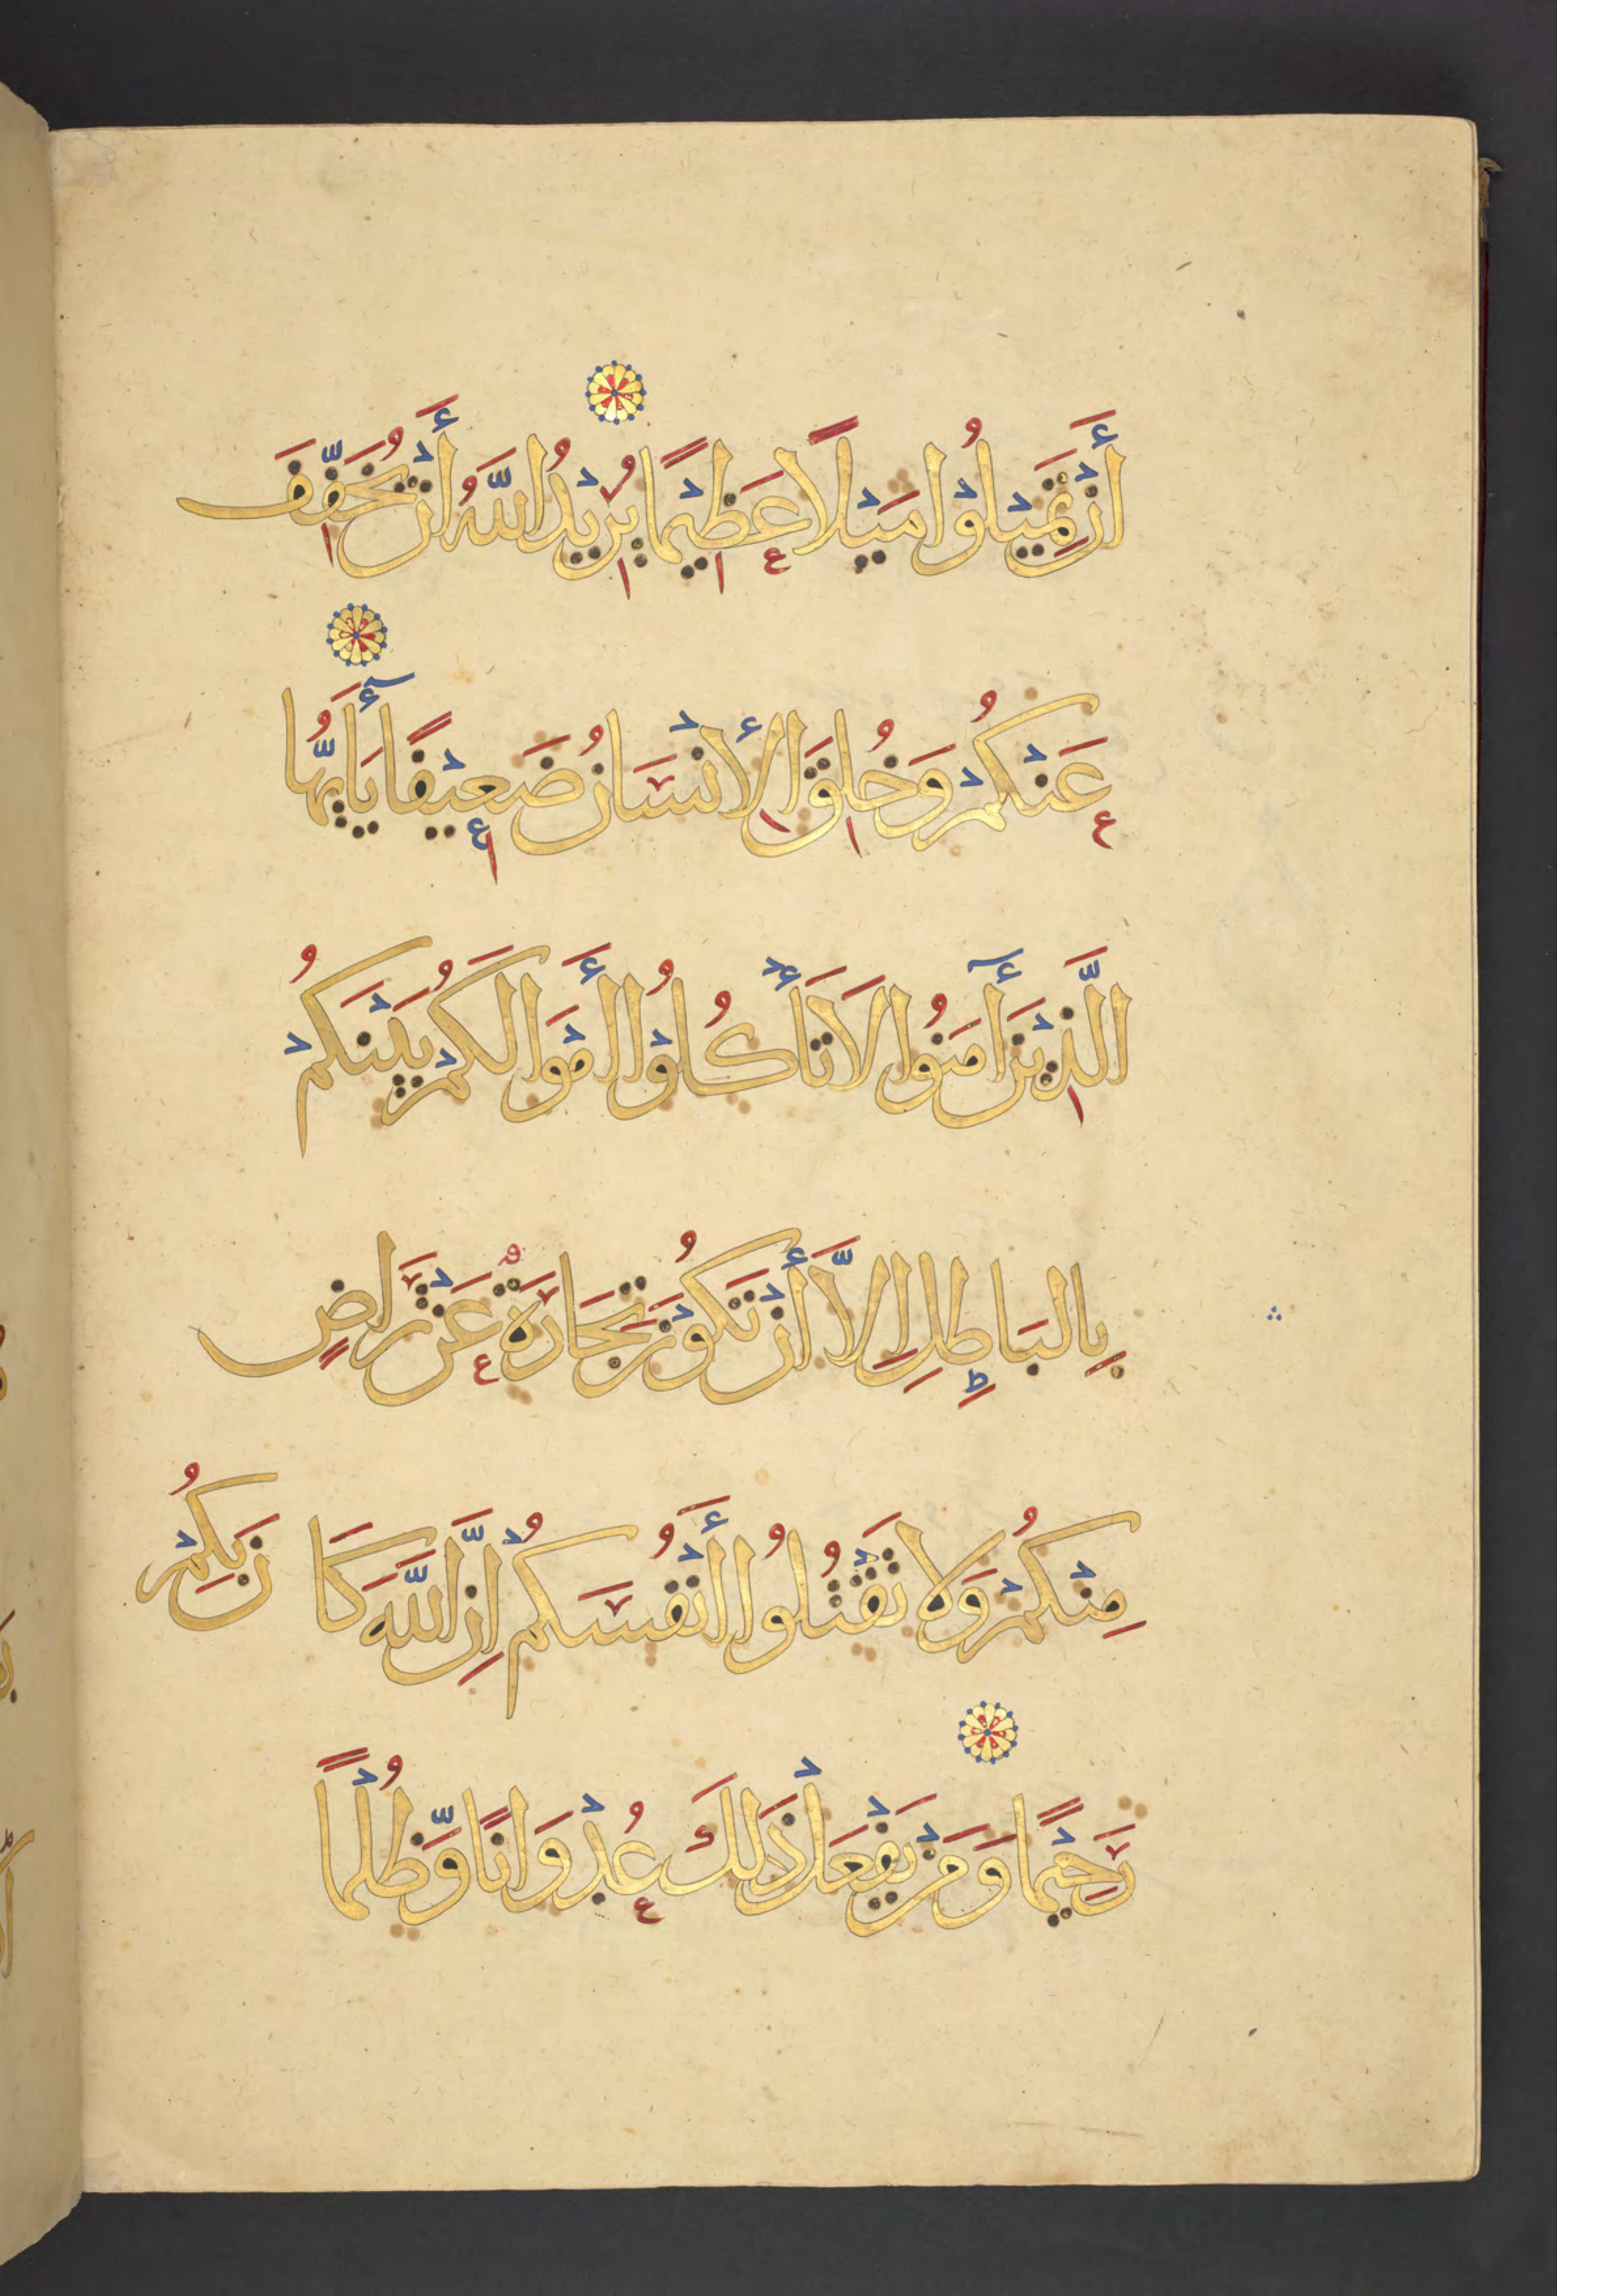 أَنْ تَمِيْلُوْا مَيْلًا عَظِيْمًا يُرِيْدُ اللّٰهُ أَنْ يُخَفِّفَ
عَنْكُمْ وَخُلِقَ الْأِنْسَانُ ضَعِيْفًا يَاأَيُّهَا
الَّذِيْنَ أٓمَنُوا لَا تَأْكُلُوْا أَمْوَالَكُمْ بَيْنَكُمْ
بِالبَاطِلِ اِلَّا أَنْ تَكُوْنَ تِجَارَةٌ عَنْ تَرَاضٍ
مِنْكُمْ وَلَا تَقْتُلُوُا أَنْفُسَكُمْ اِنَّ اللّٰهَ كَانَ بِكُمْ
رَحِيْمًا وَمَنْ يَفْعَلْ ذَلِكَ عُدْوَانًا وَّظُلْمًا